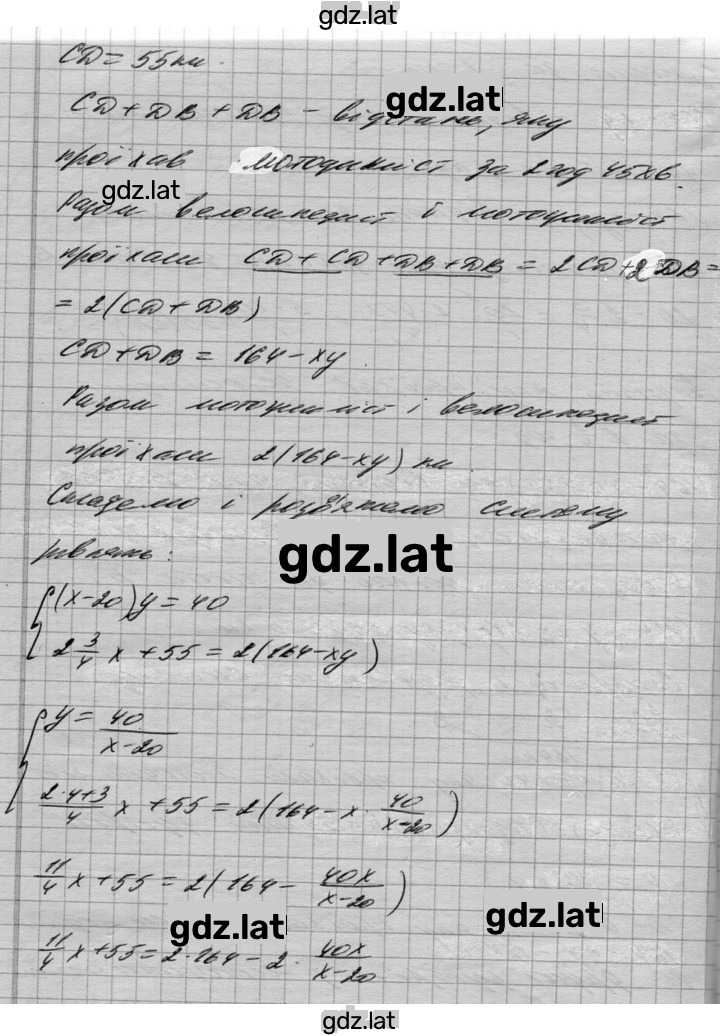 gdz.lat
CD = 55 км.
CD + DB + DB – відстань, яку
gdz.lat
проїхав мотоцикліст за 2 год 45 хв.
gdz.lat
Разом велосипедист і мотоцикліст
проїхали CD + CD + DB + DB = 2CD + 2DB =
= 2(CD + DB)
CD + DB = 164 – xy.
Разом мотоцикліст і велосипедист
проїхали 2(164 – xy) км.
Складемо і розв'яжемо систему
gdz.lat
рівнянь:
{ (x – 20)y = 40
2 3/4 x + 55 = 2(164 – xy)
{ y = 40/(x – 20)
(2·4+3)/4 x + 55 = 2(164 – x · 40/(x – 20))
11/4 x + 55 = 2(164 – 40x/(x – 20))
gdz.lat
gdz.lat
11/4 x + 55 = 2·164 – 2 · 40x/(x – 20)
gdz.lat